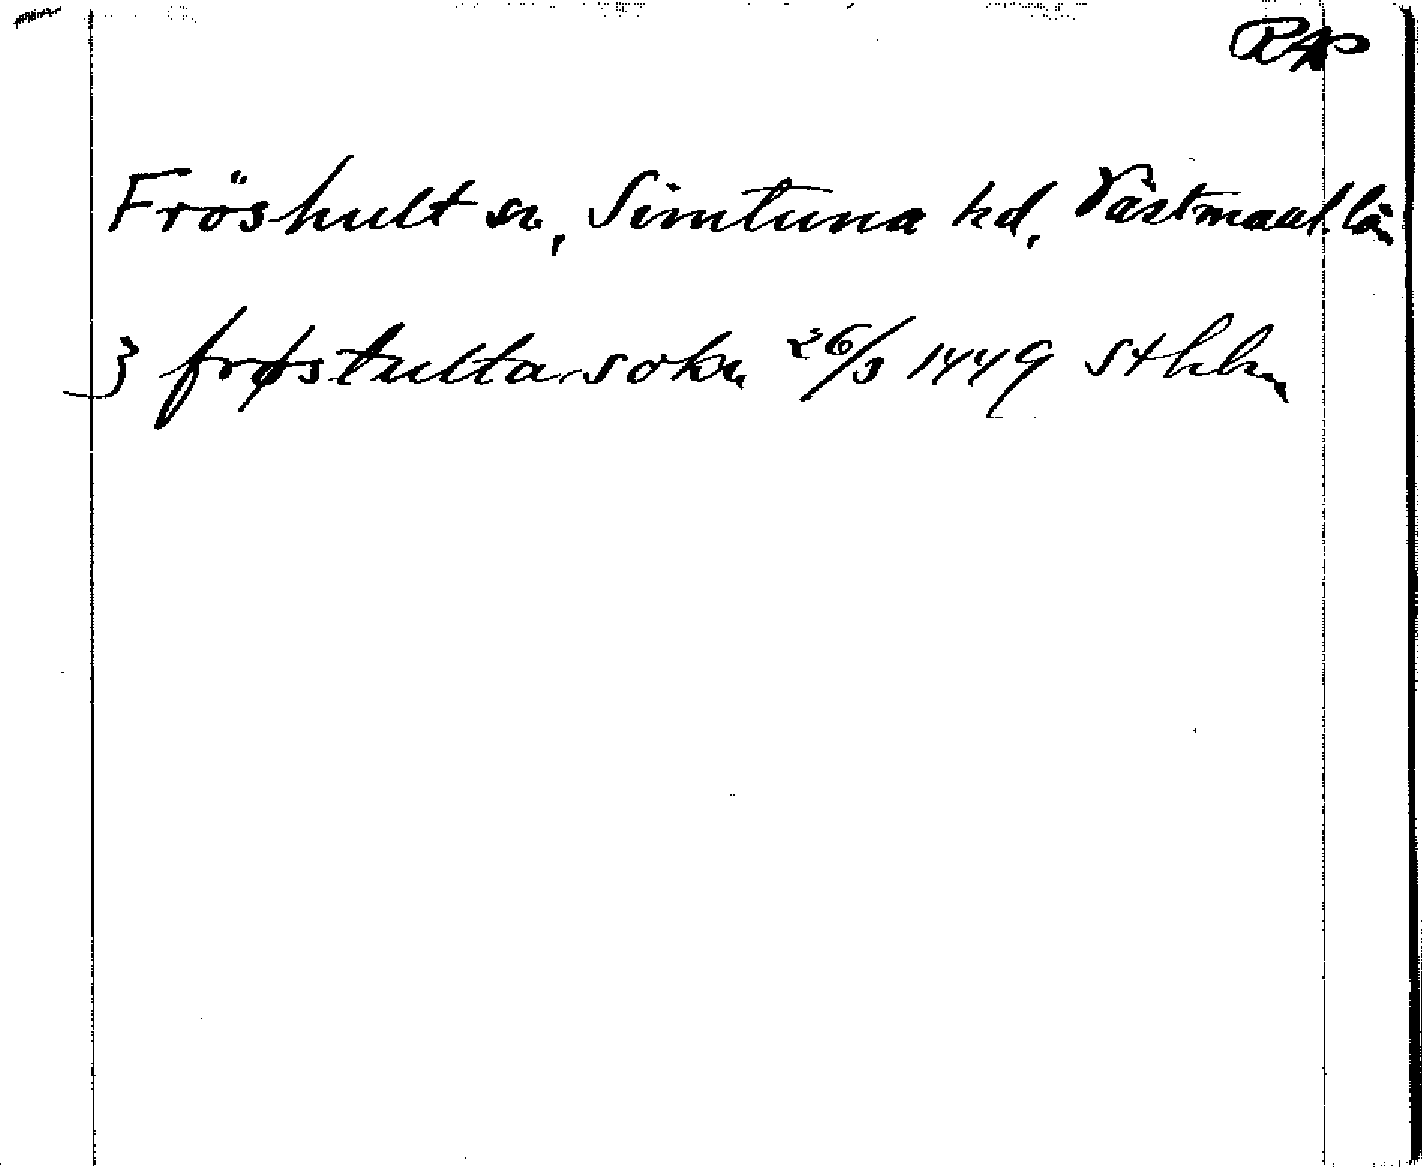 RAP
Fröshult sn, Simtuna hd, Västmanl. län
j frøstulta sokn 26/3 1449 Sthlm